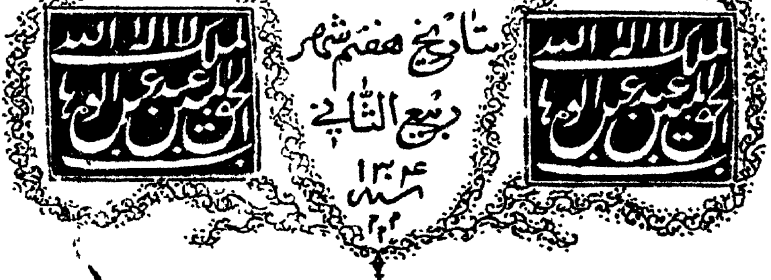 لا اله الا الله الملک
الحق المبین عبده عبد الوهاب
بتاریخ هفتم شهر
ربیع الثانی
۱۳۰۴
سنه
لا اله الا الله الملک
الحق المبین عبده عبد الوهاب